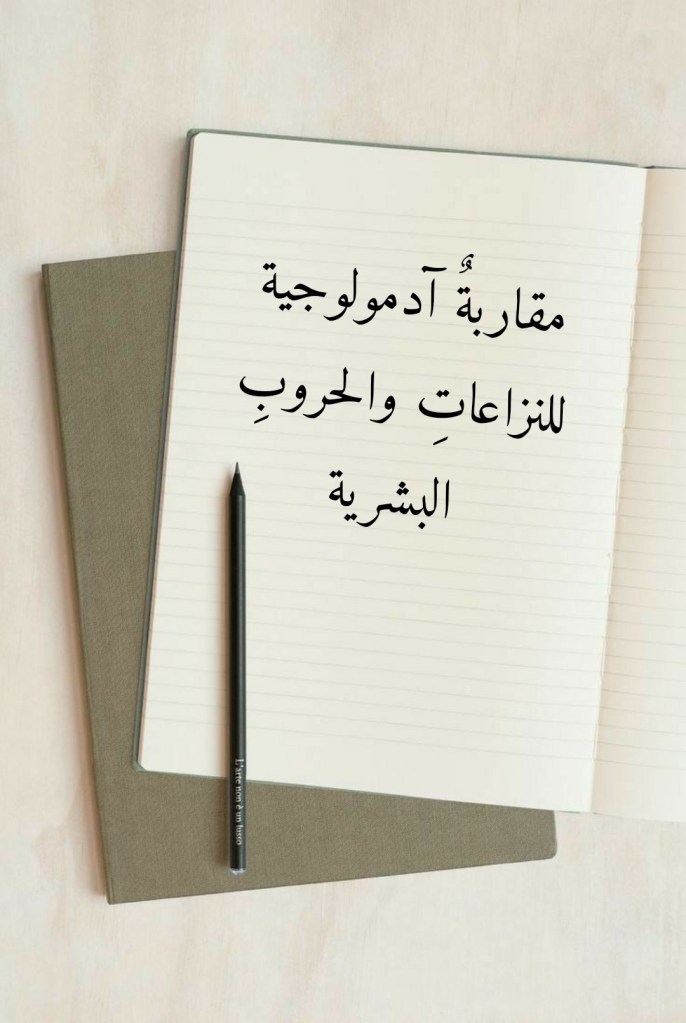 مقاربةٌ آدمولوجية
للنزاعاتِ والحروبِ
البشرية
L'arte non è un lusso